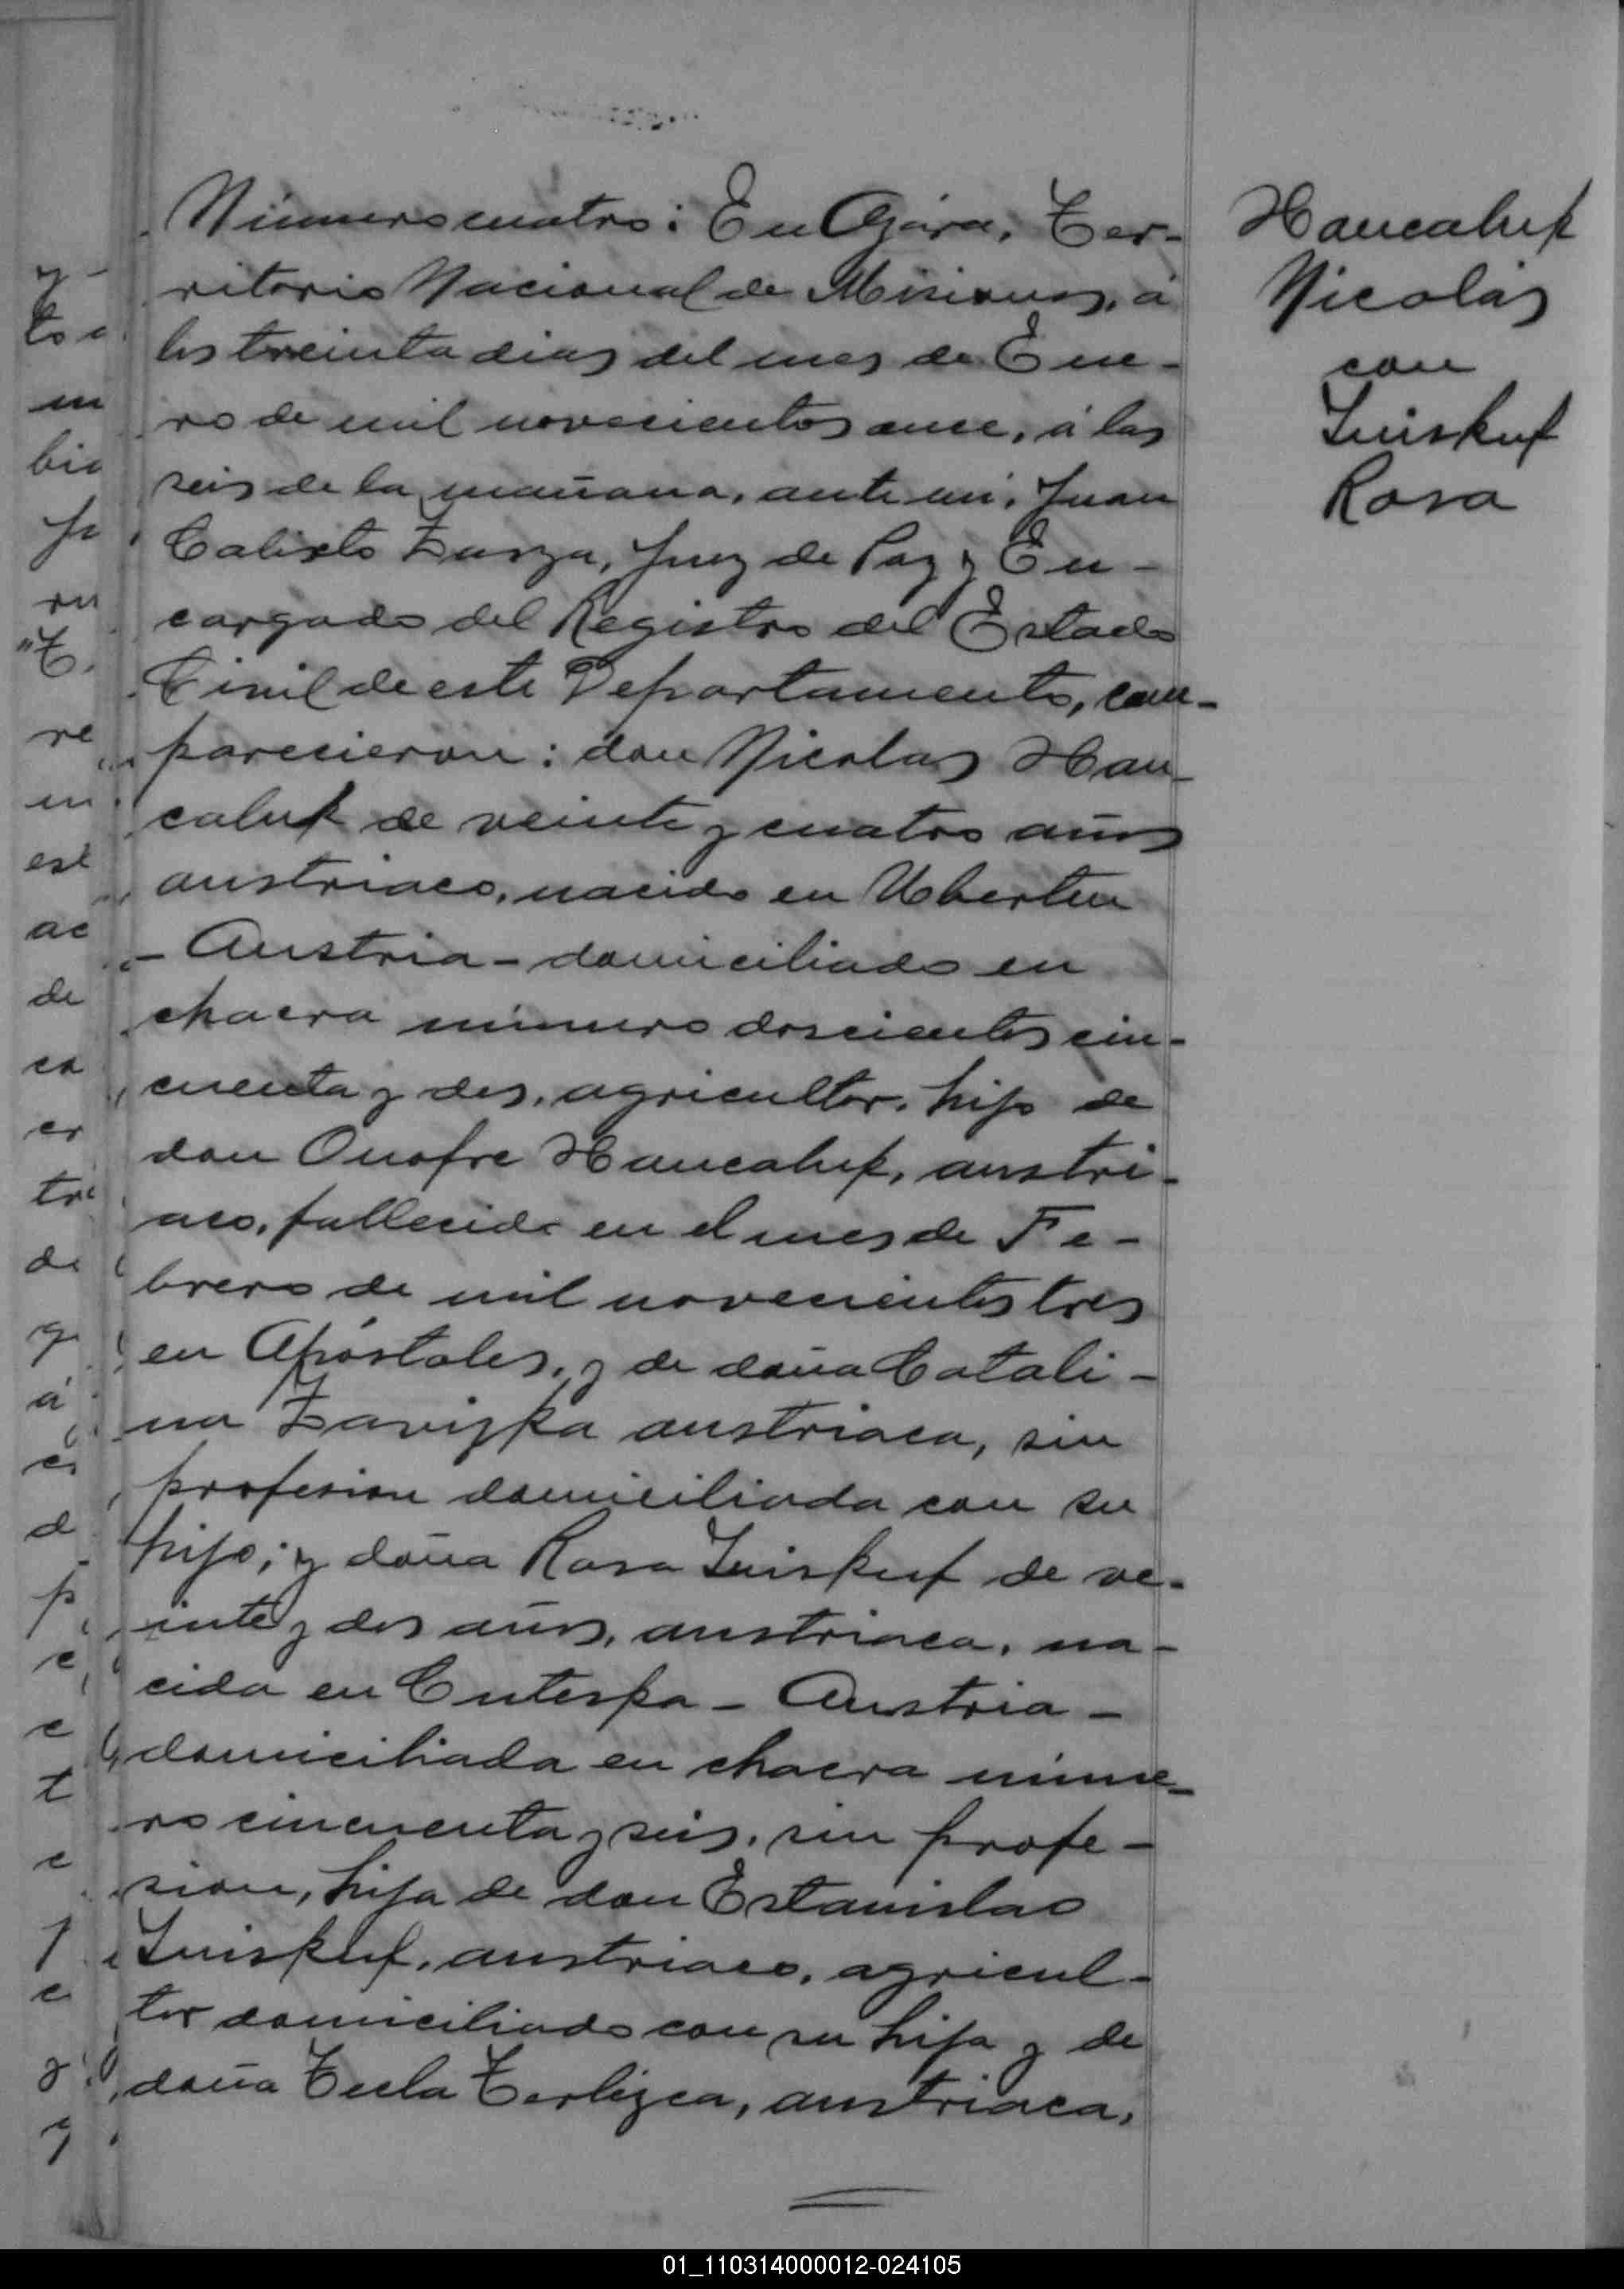 Número cuatro: En Azara, Ter-
ritorio Nacional de Misiones, á
los treinta dias del mes de Ene-
ro de mil novecientos once, á las
seis de la mañana, ante mi, Juan
Calixto Zarza, Juez de Paz y En-
cargado del Registro del Estado
Civil de este Departamento, com-
parecieron: don Nicolas Han-
caluk de veinte y cuatro años
austriaco, nacido en Uberten
- Austria - domiciliado en
chacra número doscientos cin-
cuenta y dos, agricultor, hijo de
don Onofre Hancaluk, austri-
aco, fallecido en el mes de Fe-
brero de mil novecientos tres
en Apóstoles, y de doña Catali-
na Zavizka austriaca, sin
profesion domiciliada con su
hijo; y doña Rosa Juiskuf de ve-
inte y dos años, austriaca, na-
cida en Cuteska - Austria -
domiciliada en chacra núme-
ro cincuenta y seis, sin profe-
sion, hija de don Estanislao
Juiskuf, austriaco, agricul-
tor domiciliado con su hija y de
doña Tecla Terlizca, austriaca,
Hancaluk
Nicolás
con
Juiskuf
Rosa
01_110314000012-024105